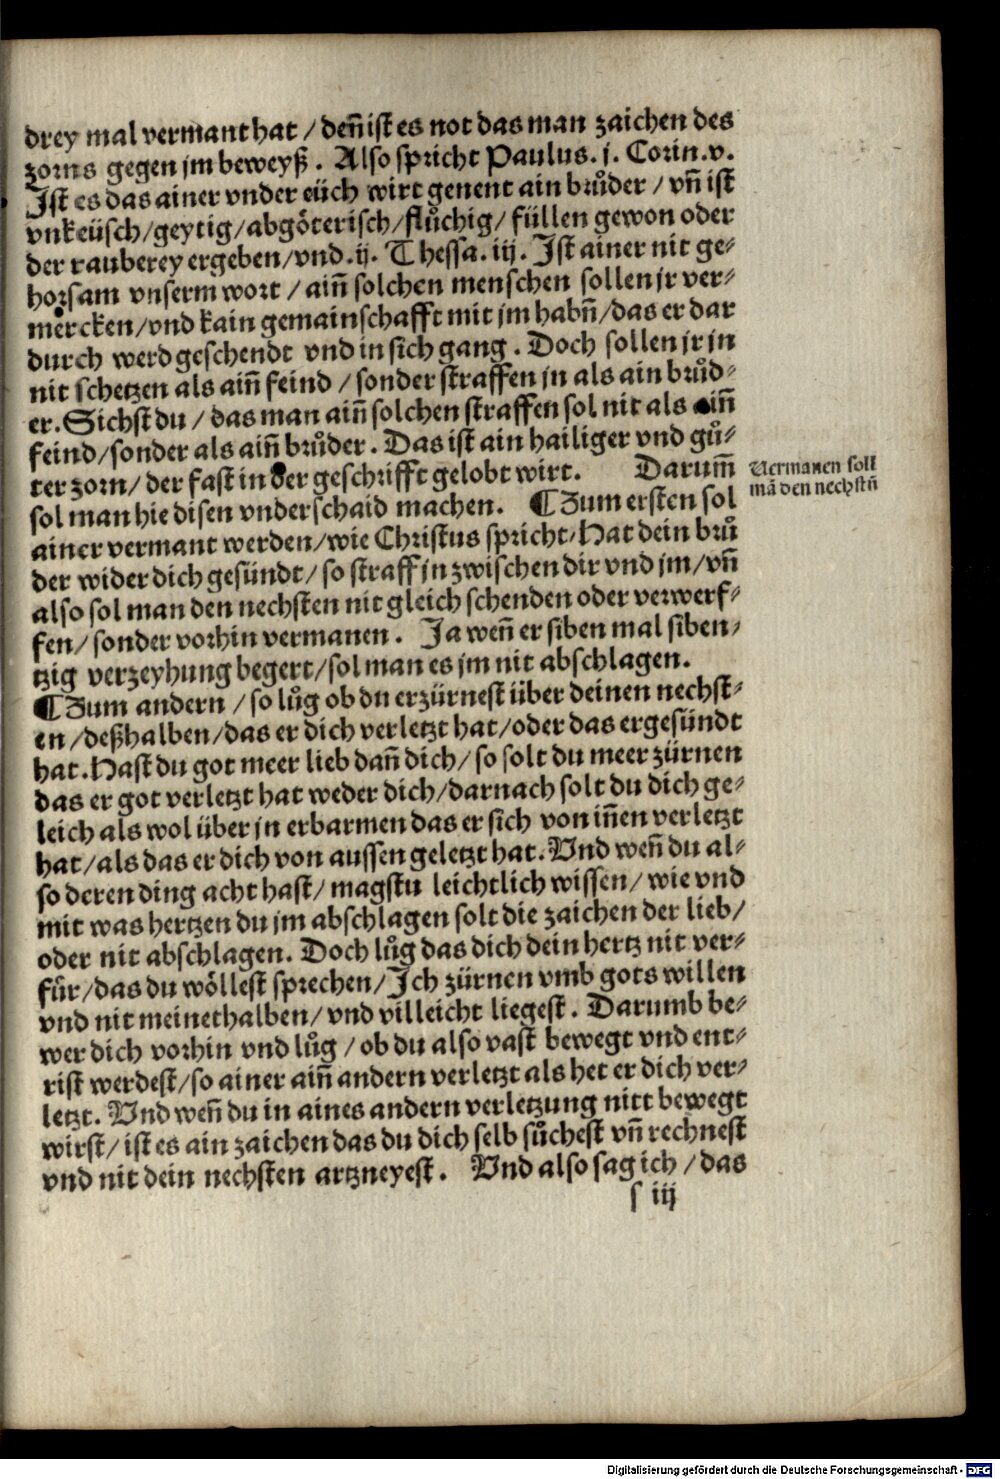 drey mal vermant hat / deñ ist es not das man zaichen des
zorns gegen jm beweyß . Also spricht Paulus. j. Corin. v.
Ist es das ainer vnder eüch wirt genent ain brůder / vñ ist
vnkeüsch/geytig/abgöterisch/flůchig/füllen gewon oder
der rauberey ergeben/vnd .ij. Thessa. iij. Ist ainer nit ge⸗
horsam vnserm wort / aiñ solchen menschen sollen jr ver⸗
mercken/vnd kain gemainschafft mit jm habñ/das er dar
durch werd geschendt vnd in sich gang . Doch sollen jr jn
nit schetzen als aiñ feind / sonder straffen jn als ain brůd⸗
er. Sichst du / das man aiñ solchen straffen sol nit als aiñ
feind/sonder als aiñ brůder. Das ist ain hailiger vnd gů⸗
ter zorn/ der fast in der geschrifft gelobt wirt. Darum̃
sol man hie disen vnderschaid machen. ¶Zum ersten sol
ainer vermant werden/wie Christus spricht/Hat dein brů
der wider dich gesündt/ so straff jn zwischen dir vnd jm/vñ
also sol man den nechsten nit gleich schenden oder verwerf⸗
fen/ sonder vorhin vermanen . Ja weñ er siben mal siben⸗
tzig verzeyhung begert/sol man es jm nit abschlagen.
¶Zum andern / so lůg ob du erzürnest über deinen nechst⸗
en /deßhalben/das er dich verletzt hat/oder das er gesündt
hat. Hast du got meer lieb dañ dich/ so solt du meer zürnen
das er got verletzt hat weder dich/darnach solt du dich ge⸗
leich als wol über jn erbarmen das er sich von iñen verletzt
hat/als das er dich von aussen geletzt hat. Vnd weñ du al⸗
so deren ding acht hast/ magstu leichtlich wissen/ wie vnd
mit was hertzen du jm abschlagen solt die zaichen der lieb/
oder nit abschlagen. Doch lůg das dich dein hertz nit ver⸗
für/das du wöllest sprechen/Ich zürnen vmb gots willen
vnd nit meinethalben/ vnd villeicht liegest . Darumb be⸗
wer dich vorhin vnd lůg / ob du also vast bewegt vnd ent⸗
rist werdest/so ainer aiñ andern verletzt als het er dich ver⸗
letzt. Vnd weñ du in aines andern verletzung nitt bewegt
wirst/ ist es ain zaichen das du dich selb sůchest vñ rechnest
vnd nit dein nechsten artzneyest . Vnd also sag ich / das
s iij
Vermanen soll
mã den nechstñ
Digitalisierung gefördert durch die Deutsche Forschungsgemeinschaft - DFG